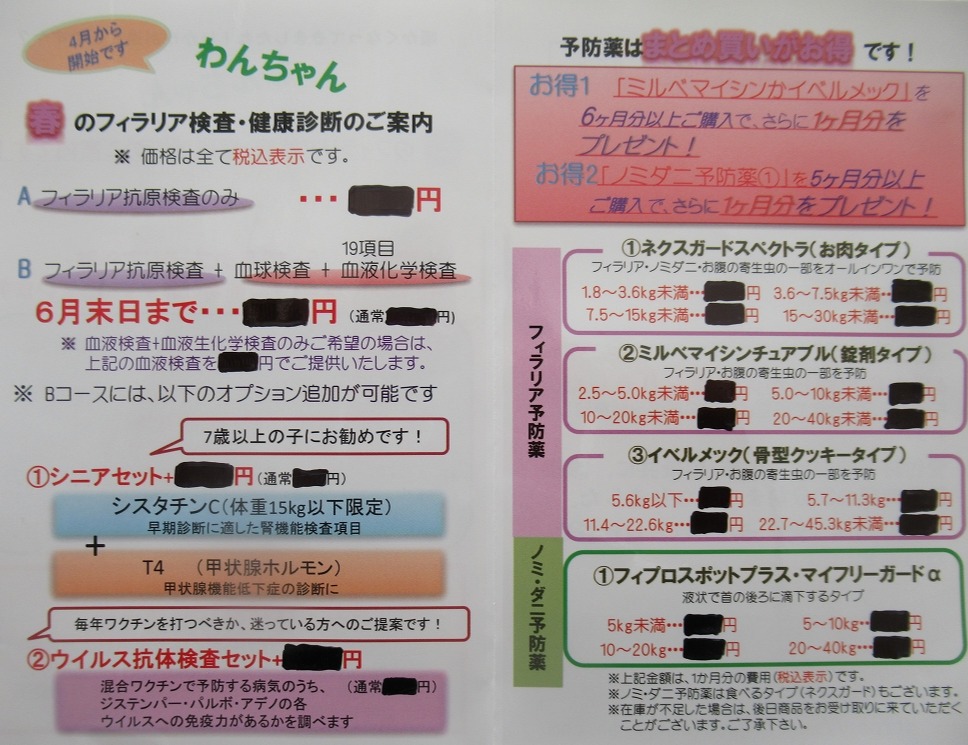 4月から
開始です
わんちゃん
春 のフィラリア検査・健康診断のご案内
※ 価格は全て税込表示です。
A フィラリア抗原検査のみ ・・・ 円
19項目
B フィラリア抗原検査 + 血球検査 + 血液化学検査
6月末日まで・・・ 円 (通常 円)
※ 血液検査+血液生化学検査のみご希望の場合は、
上記の血液検査を 円でご提供いたします。
※ Bコースには、以下のオプション追加が可能です
7歳以上の子にお勧めです！
①シニアセット+ 円(通常 円)
シスタチンC(体重15kg以下限定)
早期診断に適した腎機能検査項目
+
T4 (甲状腺ホルモン)
甲状腺機能低下症の診断に
毎年ワクチンを打つべきか、迷っている方へのご提案です！
②ウイルス抗体検査セット+ 円
混合ワクチンで予防する病気のうち、 (通常 円)
ジステンパー・パルボ・アデノの各
ウイルスへの免疫力があるかを調べます
予防薬はまとめ買いがお得です！
お得1 「ミルベマイシンかイベルメック」を
6ヶ月分以上ご購入で、さらに1ヶ月分を
プレゼント！
お得2「ノミダニ予防薬①」を5ヶ月分以上
ご購入で、さらに1ヶ月分をプレゼント！
フィラリア予防薬
①ネクスガードスペクトラ(お肉タイプ)
フィラリア・ノミダニ・お腹の寄生虫の一部をオールインワンで予防
1.8～3.6kg未満… 円 3.6～7.5kg未満… 円
7.5～15kg未満… 円 15～30kg未満… 円
②ミルベマイシンチュアブル(錠剤タイプ)
フィラリア・お腹の寄生虫の一部を予防
2.5～5.0kg未満… 円 5.0～10kg未満… 円
10～20kg未満… 円 20～40kg未満… 円
③イベルメック(骨型クッキータイプ)
フィラリア・お腹の寄生虫の一部を予防
5.6kg以下… 円 5.7～11.3kg… 円
11.4～22.6kg… 円 22.7～45.3kg未満… 円
ノミ・ダニ予防薬
①フィプロスポットプラス・マイフリーガードα
液状で首の後ろに滴下するタイプ
5kg未満… 円 5～10kg… 円
10～20kg… 円 20～40kg… 円
※上記金額は、1か月分の費用(税込表示)です。
※ノミ・ダニ予防薬は食べるタイプ(ネクスガード)もございます。
※在庫が不足した場合は、後日商品をお受け取りに来ていただく
ことがございます。ご了承下さい。